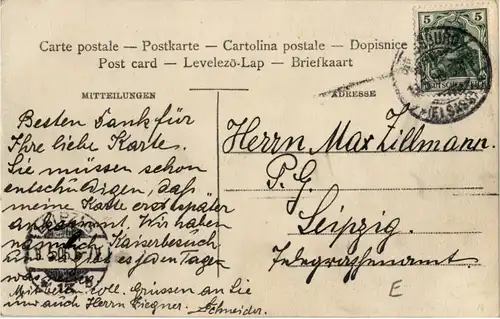 Carte postale — Postkarte — Cartolina postale — Dopisnice
Post card — Levelező-Lap — Briefkaart
MITTEILUNGEN
ADRESSE
5 5
Besten Dank für
Ihre liebe Karte.
Sie müssen schon
entschuldigen, daß
meine Karte erst später
ankommt. Wir haben
nämlich Kaiserbesuch
es jeden Tagen
was
Grüssen an Sie
nur auch Herrn Ziegner. Schneider.
Herrn Max Zillmann.
P. G.
Leipzig.
Telegraphenamt
E